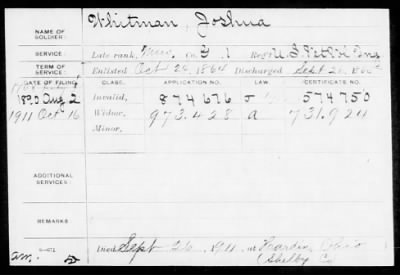 NAME OF SOLDIER: Whitman, Joshua
SERVICE: Late rank, Co. G, 1 Reg't U. S. Vet. Vol. Eng
TERM OF SERVICE: Enlisted Oct 24, 1864 Discharged Sept 26, 1865
DATE OF FILING. CLASS. APPLICATION NO. LAW. CERTIFICATE NO.
1890 Aug 2 Invalid, 874676 574750
1911 Oct 16 Widow, 973.428 a 731.924
Minor,
ADDITIONAL SERVICES:
REMARKS
Died Sept 26, 1911, at Hardin, Ohio
(Shelby Co